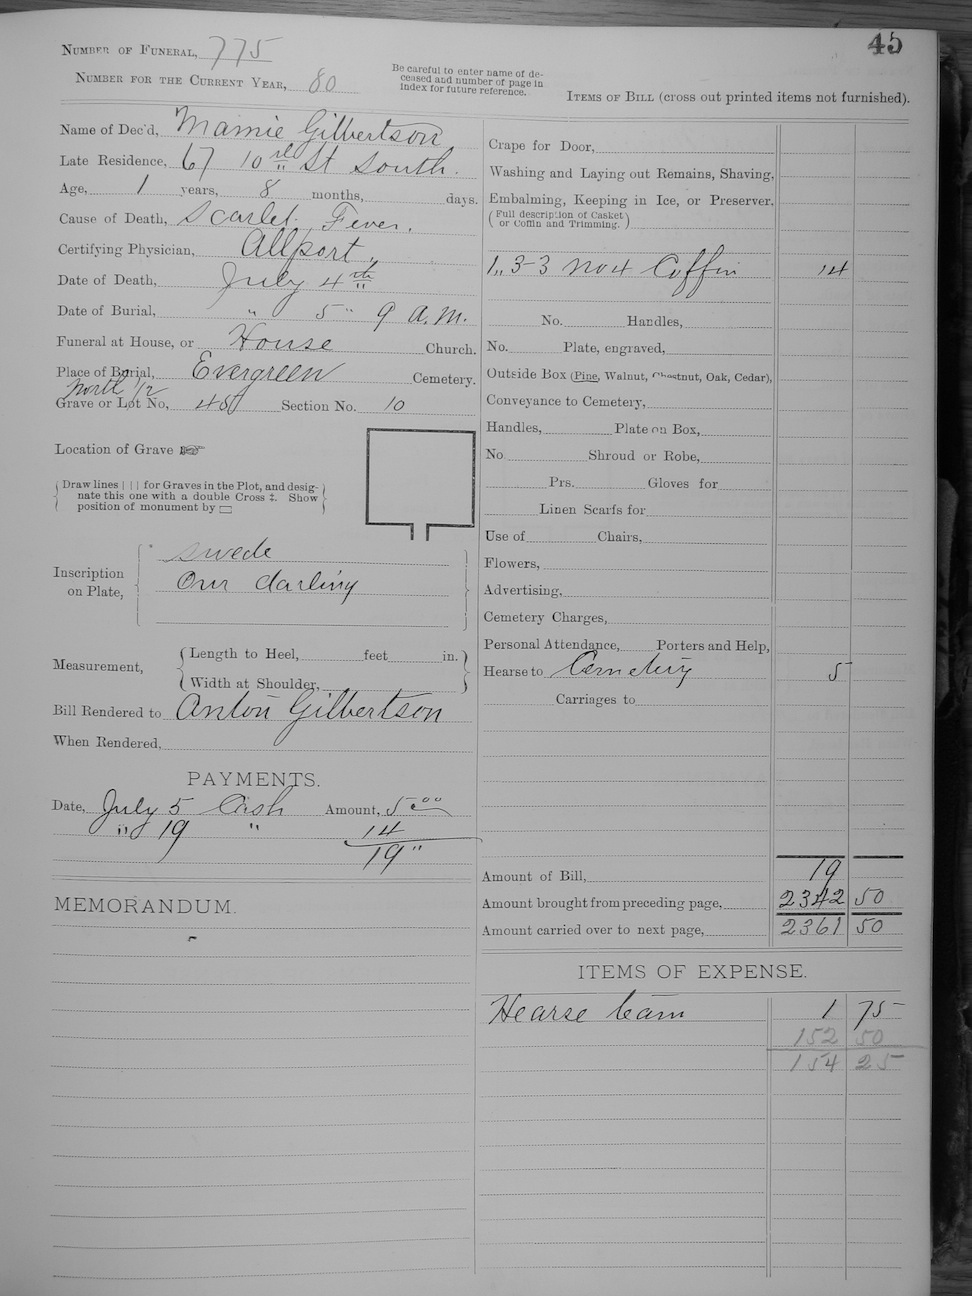 45
NUMBER OF FUNERAL, 775
NUMBER FOR THE CURRENT YEAR, 80
Be careful to enter name of de-
ceased and number of page in
index for future reference.
ITEMS OF BILL (cross out printed items not furnished).
Name of Dec'd, Mamie Gilbertson
Late Residence, 67 10 St South.
Age, 1 years, 8 months, days.
Cause of Death, Scarlet Fever.
Certifying Physician, Allport
Date of Death, July 4th
Date of Burial, " 5" 9 A.M.
Funeral at House, or House Church.
Place of Burial, Evergreen Cemetery.
North 1/2
Grave or Lot No, 48 Section No. 10
Location of Grave ☞
Draw lines | | | for Graves in the Plot, and desig-
nate this one with a double Cross ‡. Show
position of monument by ▭
Inscription
on Plate,
Swede
Our darling
Measurement,
Length to Heel, feet in.
Width at Shoulder,
Bill Rendered to Anton Gilbertson
When Rendered,
PAYMENTS.
Date, July 5 Cash Amount, 5 00
" 19 " 14
19 "
MEMORANDUM.
Crape for Door,
Washing and Laying out Remains, Shaving,
Embalming, Keeping in Ice, or Preserver,
(Full description of Casket
or Coffin and Trimming.)
1,, 3-3 No 4 Coffin 14
No. Handles,
No. Plate, engraved,
Outside Box (Pine, Walnut, Chestnut, Oak, Cedar),
Conveyance to Cemetery,
Handles, Plate on Box,
No. Shroud or Robe,
Prs. Gloves for
Linen Scarfs for
Use of Chairs,
Flowers,
Advertising,
Cemetery Charges,
Personal Attendance, Porters and Help,
Hearse to Cemetery 5
Carriages to
Amount of Bill, 19
Amount brought from preceding page, 2342 50
Amount carried over to next page, 2361 50
ITEMS OF EXPENSE.
Hearse 1 75
152 50
154 25